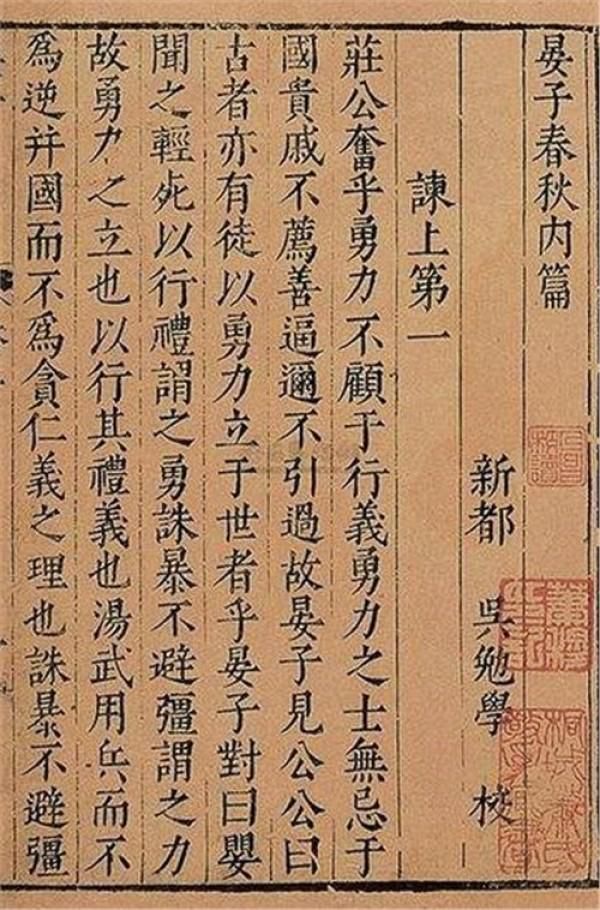 晏子春秋内篇
新都 吳勉學 校
諫上第一
莊公奮乎勇力不顧于行義勇力之士無忌于
國貴戚不薦善逼邇不引過故晏子見公公曰
古者亦有徒以勇力立于世者乎晏子對曰嬰
聞之輕死以行禮謂之勇誅暴不避彊謂之力
故勇力之立也以行其禮義也湯武用兵而不
爲逆并國而不爲貪仁義之理也誅暴不避彊